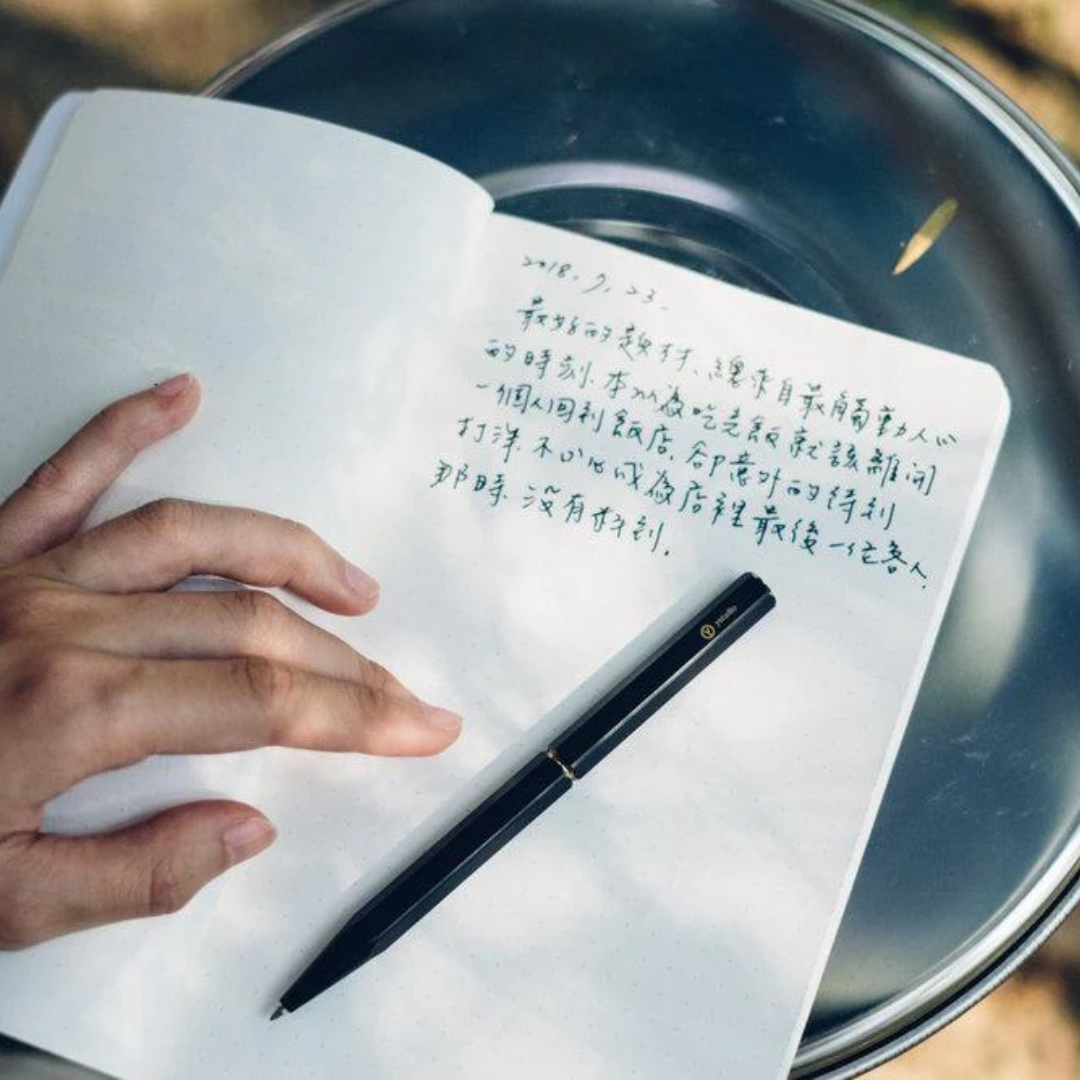 2018. 9. 23.
最好的題材、總來自最觸動人心
的時刻.本以為吃完飯就該離開
一個人回到飯店.卻意外的待到
打洋.不小心成為店裡最後一位客人.
那時.沒有料到.
ystudio